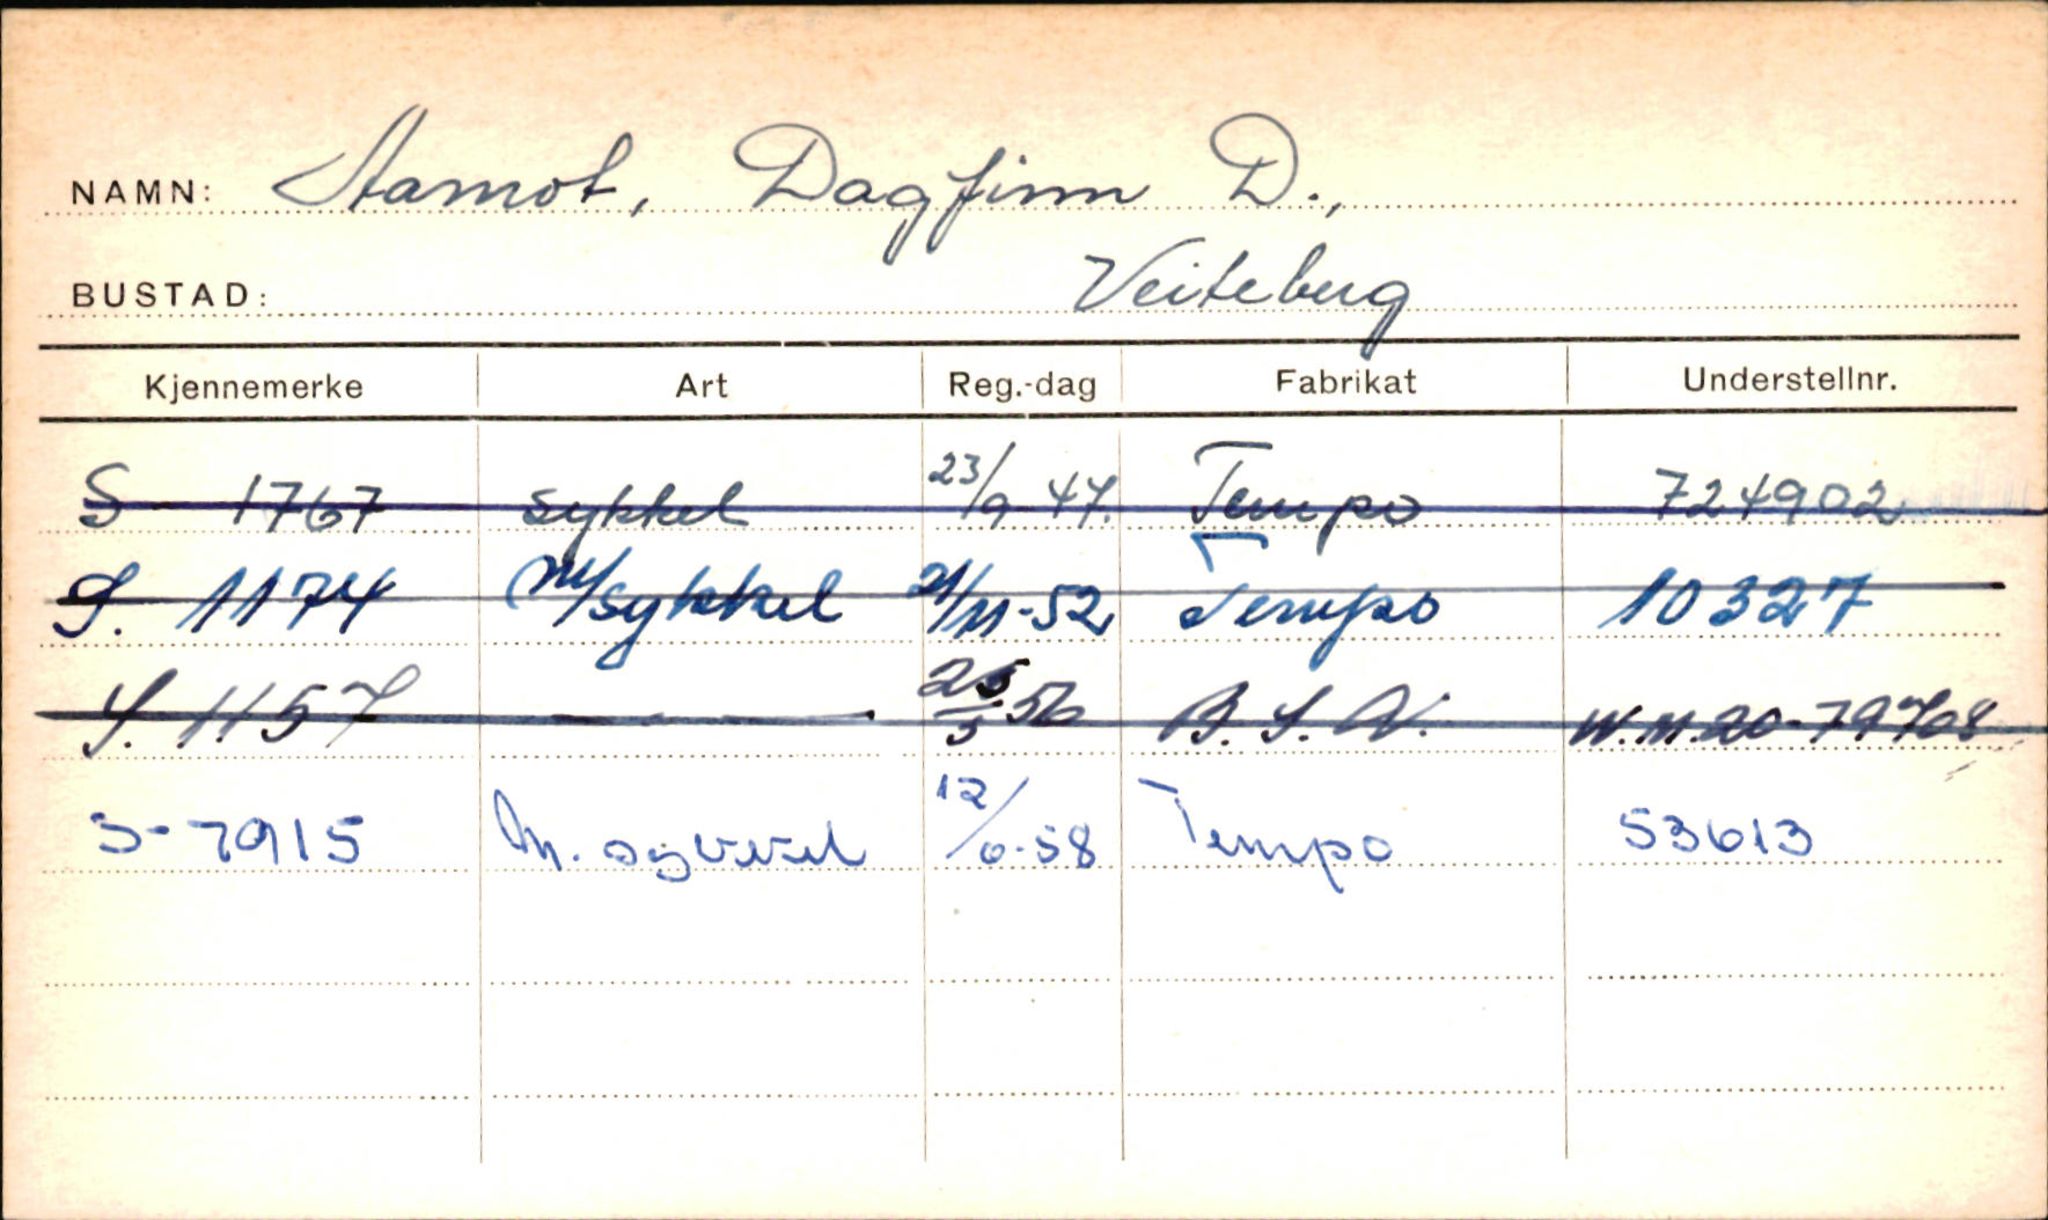 NAMN: Aamot, Dagfinn D.,
BUSTAD: Veiteberg
Kjennemerke Art Reg.-dag Fabrikat Understellnr.
S 1767 sykkel 23/9-47. Tempo 724902
S. 1174 M/sykkel 21/11-52 Tempo 10327
S. 1157 — 25/5 56 B.S.A. W.M.20-79708
S-7915 M. sykkel 12/6-58 Tempo 53613